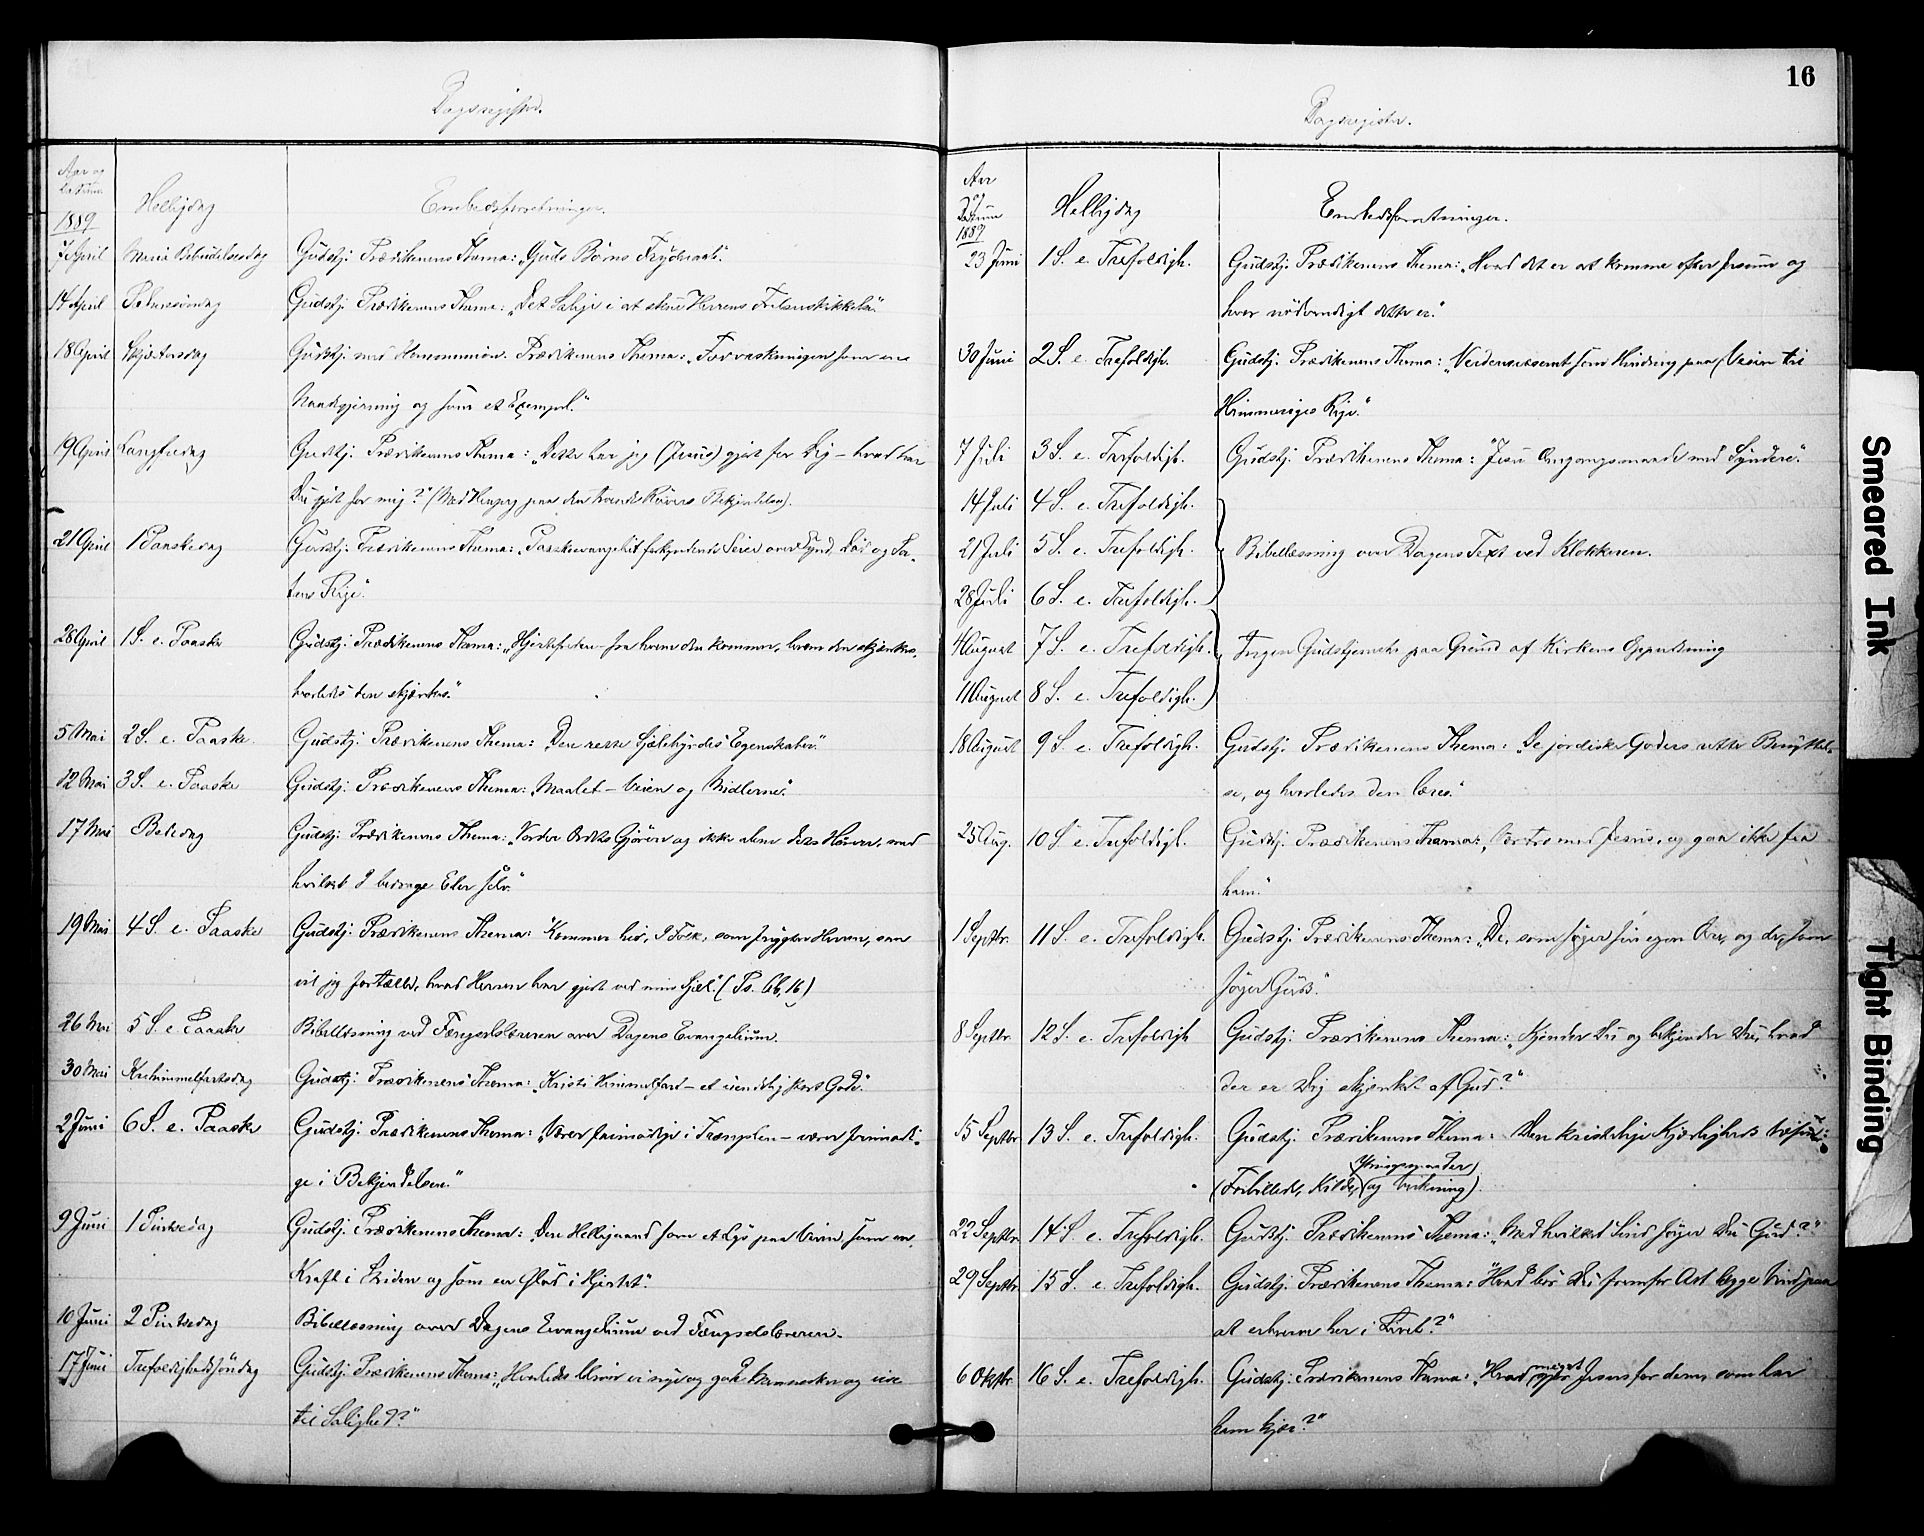 Dagsregister.
Aar og Datum
1889
Helligdag
Embedsforretninger.
7 April Mariæ Bebudelsesdag Gudstj. Prædikenens Thema: „Guds Børns Frydesaft.
14 April Palmesøndag Gudstj. Prædikenens Thema: „Det Salige i at skue Herrens
18 April Skjærtorsdag Gudstj. med Kommunion. Prædikenens Thema: „Tovaskningen som en
Naadegjerning og som et Exempel."
19 April Langfredag Gudstj. Prædikenens Thema: „Dette har jeg (Jesus) gjort for Dig – hvad har
Du gjort for mig?" (Med Hensyn paa den Røvers Bekjendelse).
21 April 1 Paaskedag Gudstj. Prædikenens Thema: „Paaskeevangeliet forkynder Seier over Synd, Død og Sa-
tans Rige."
28 April 1 S. e. Paaske Gudstj. Prædikenens Thema: „Hjertefreden – fra hvem den kommer, hvem den skjænkes,
hvorledes den skjænkes."
5 Mai 2 S. e. Paaske. Gudstj. Prædikenens Thema: „Den rette Sjælehyrdes Egenskaber."
12 Mai 3 S. e. Paaske Gudstj. Prædikenens Thema: „Maalet – Veien og Midlerne."
17 Mai Bededag Gudstj. Prædikenens Thema: „Vorder Ordets Gjørere og ikke alene dets Hørere, med
hvilket I bedrage Eder selv."
19 Mai 4 S. e. Paaske Gudstj. Prædikenens Thema: "Kommer hid, I Folk, som frygter Herren, saa
vil jeg fortælle, hvad Herren har gjort ved min Sjæl." (Ps. 66, 16)
26 Mai 5 S. e Paaske Bibellæsning ved Fængselslæreren over Dagens Evangelium.
30 Mai Kr. himmelfartsdag Gudstj. Prædikenens Thema: „Kristi Himmelfart – et uendelig stort Gode."
2 Juni 6 S. e. Paaske Gudstj. Prædikenens Thema: „Værer frimodige i Trængslen – værer frimodi-
ge i Bekjendelsen."
9 Juni 1 Pintsedag Gudstj. Prædikenens Thema: „Den Helligaand som et Lys paa Veien, som en
Kraft i Striden og som en Glød i Hjertet."
10 Juni 2 Pintsedag Bibellæsning over Dagens Evangelium ved Fængselslæreren.
17 Juni Trefoldighedssøndag Gudstj. Prædikenens Thema: „Hvorledes blive vi nye og gode Mennesker og vise
til Salighed?"
16
Dagsregister.
Aar og Datum
1889
Helligdag
Embedsforretninger.
23 Juni 1 S. e. Trefoldigh. Gudstj. Prædikenens Thema: „Hvad det er at komme efter Jesum og
hvor nødvendigt dette er."
30 Juni 2 S. e Trefoldigh. Gudstj. Prædikenens Thema: „Verdensvæsenet som Hindring paa Veien til
Himmeriges Rige."
7 Juli 3 S. e. Trefoldigh. Gudstj. Prædikenens Thema: "Jesu Omgangsmaade med Syndere."
14 Juli 4 S. e. Trefoldigh.
21 Juli 5 S. e. Trefoldigh. Bibellæsning over Dagens Text ved Klokkeren.
28 Juli 6 S. e. Trefoldigh.
4 August 7 S. e. Trefoldigh. Ingen Gudstjeneste paa Grund af Kirkens Oppudsning
11 August 8 S. e. Trefoldigh.
18 August 9 S. e Trefoldigh. Gudstj. Prædikenens Thema: „De jordiske Goders rette Benyttel-
se, og hvorledes den læres."
25 Aug. 10 S e Trefoldigh. Gudstj. Prædikenens Thema: „Vær tro mod Jesus, og gaa ikke fra
ham."
1 Septbr. 11 S. e. Trefoldigh. Gudstj. Prædikenens Thema: „De, som søger sin egen Ære, og de, som
søger Guds."
8 Septbr 12 S. e. Trefoldigh Gudstj. Prædikenens Thema: „Kjender Du og bekjender Du, hvad
der er Dig skjænket af Gud?"
15 Septbr 13 S. e. Trefoldigh. Gudstj. Prædikenens Thema: Den kristelige Kjærligheds
(Forbillede, Kilde, Ytringsmaader og Virkning).
22 Septbr 14 S. e. Trefoldigh. Gudstj. Prædikenens Thema: „Med hvilket Sind søger Du Gud?"
29 Septbr 15 S. e. Trefoldigh. Gudstj. Prædikenens Thema: "Hvad bør Du fremfor Alt lægge Vind paa
at erhverve her i Livet?"
6 Oktbr. 16 S. e. Trefoldigh. Gudstj. Prædikenens Thema: „Hvad gjør Jesus for dem, som har
ham kjær?"
Smeared Ink
Tight Binding